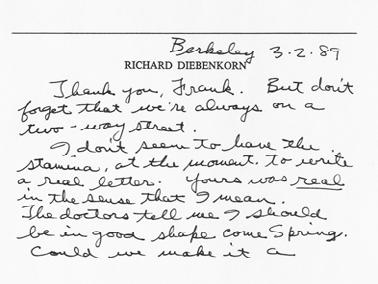 Berkeley 3-2-89
RICHARD DIEBENKORN
Thank you, Frank. But don't
forget that we're always on a
two-way street.
I don't seem to have the
stamina, at the moment, to write
a real letter. Yours was real
in the sense that I mean.
The doctors tell me I should
be in good shape come Spring.
Could we make it a